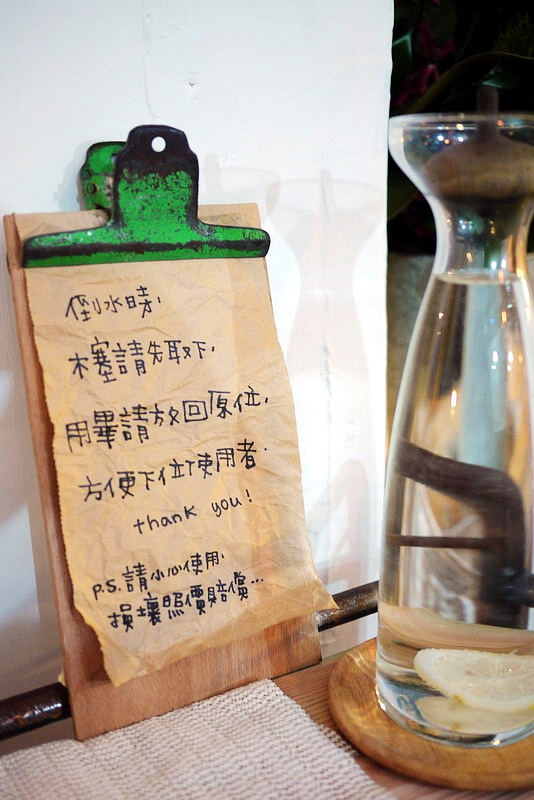 倒水時，
木塞請先取下，
用畢請放回原位，
方便下位使用者.
thank you!
P.S.請小心使用，
損壞照價賠償...